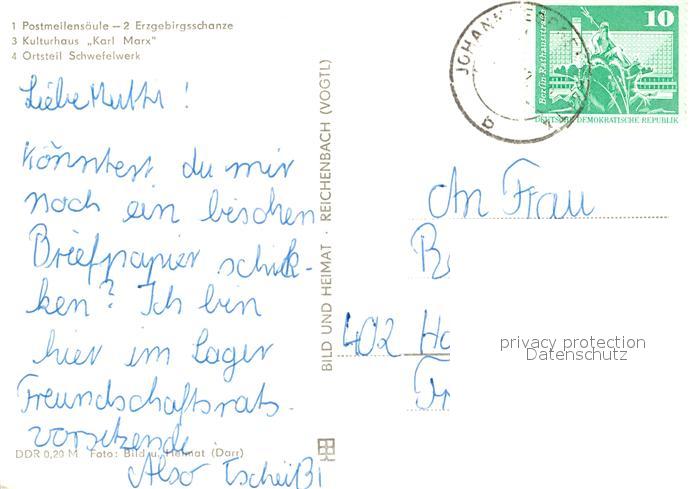 1 Postmeilensäule – 2 Erzgebirgsschanze
3 Kulturhaus „Karl Marx"
4 Ortsteil Schwefelwerk
Liebe Mutti!
Könntest du mir
noch ein bischen
Briefpapier schik-
ken? Ich bin
hier im Lager
Freundschaftsrats-
vorsitzende.
Also Tscheißi
DDR 0,20 M Foto: Bild u. Heimat (Darr)
BILD UND HEIMAT · REICHENBACH (VOGTL)
10
Berlin-Rathausstraße
DEUTSCHE DEMOKRATISCHE REPUBLIK
An Frau
402 Ha
privacy protection
Datenschutz